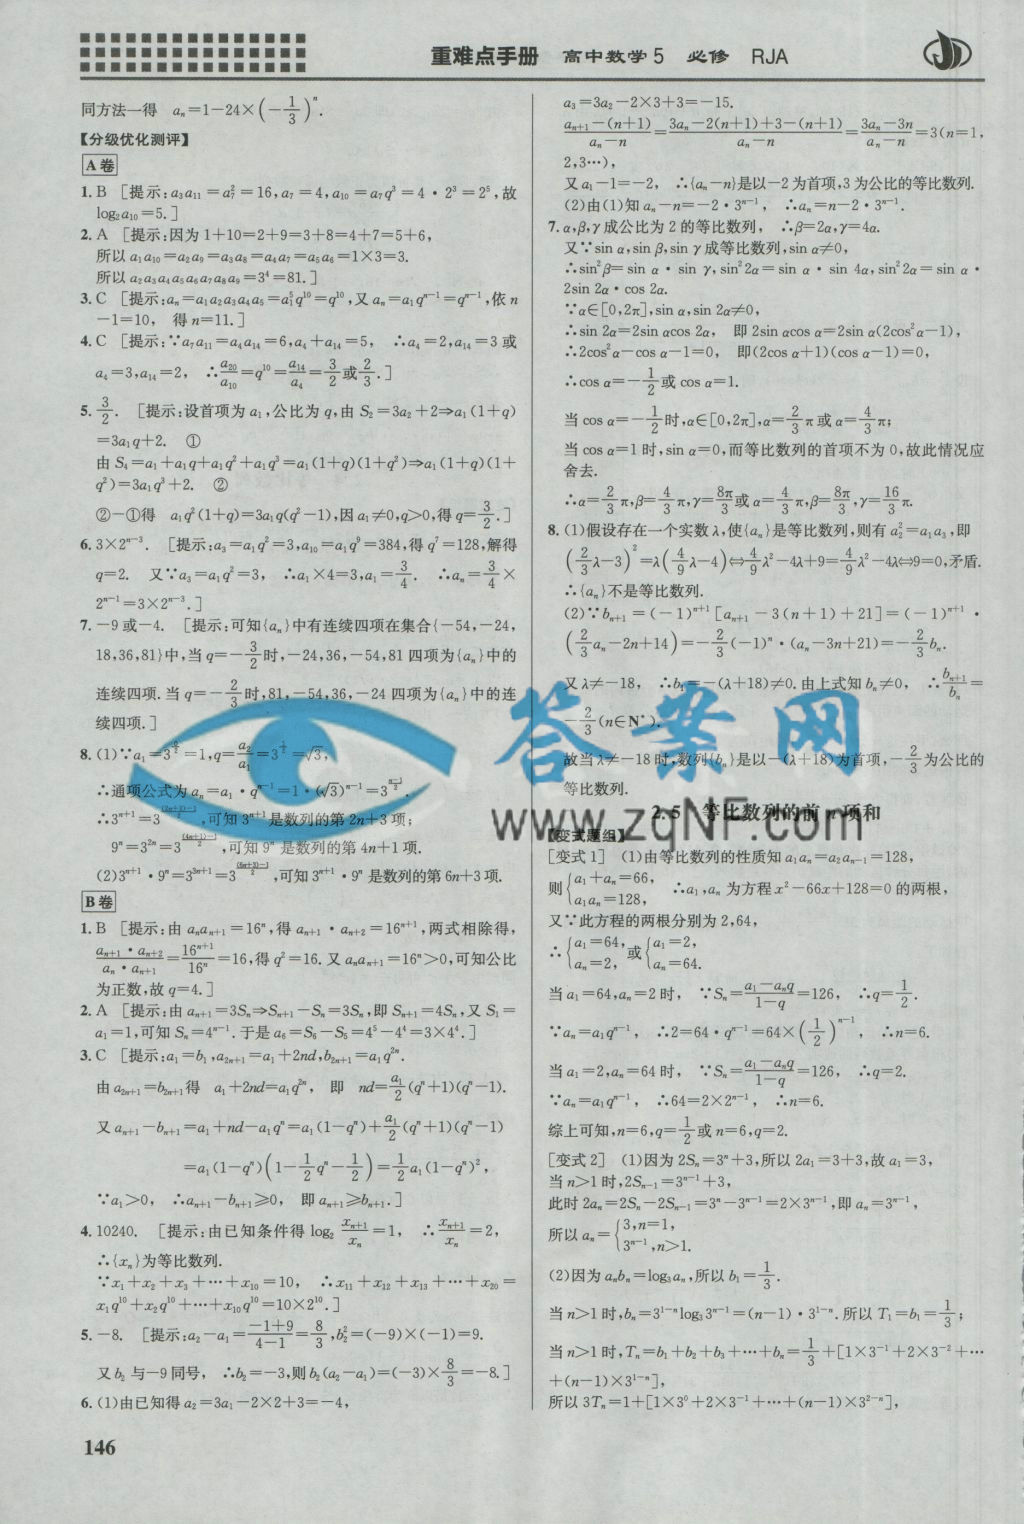 重难点手册 高中数学5 必修 RJA
同方法一得 aₙ=1-24×(-1/3)ⁿ.
【分级优化测评】
A卷
1. B [提示:a₃a₁₁=a₇²=16,a₇=4,a₁₀=a₇q³=4·2³=2⁵,故
log₂a₁₀=5.]
2. A [提示:因为1+10=2+9=3+8=4+7=5+6,
所以a₁a₁₀=a₂a₉=a₃a₈=a₄a₇=a₅a₆=1×3=3.
所以a₂a₃a₄a₅a₆a₇a₈a₉=3⁴=81.]
3. C [提示:aₙ=a₁a₂a₃a₄a₅=a₁⁵q¹⁰=q¹⁰,又aₙ=a₁qⁿ⁻¹=qⁿ⁻¹,依n
-1=10, 得n=11.]
4. C [提示:∵a₇a₁₁=a₄a₁₄=6,a₄+a₁₄=5, ∴a₄=2,a₁₄=3或
a₄=3,a₁₄=2, ∴a₂₀/a₁₀=q¹⁰=a₁₄/a₄=3/2或2/3.]
5. 3/2. [提示:设首项为a₁,公比为q,由S₂=3a₂+2⇒a₁(1+q)
=3a₁q+2. ①
由S₄=a₁+a₁q+a₁q²+a₁q³=a₁(1+q)(1+q²)⇒a₁(1+q)(1+
q²)=3a₁q³+2. ②
②-①得 a₁q²(1+q)=3a₁q(q²-1),因a₁≠0,q>0,得q=3/2.]
6. 3×2ⁿ⁻³. [提示:a₃=a₁q²=3,a₁₀=a₁q⁹=384,得q⁷=128,解得
q=2. 又∵a₃=a₁q²=3, ∴a₁×4=3,a₁=3/4. ∴aₙ=3/4×
2ⁿ⁻¹=3×2ⁿ⁻³.]
7. -9或-4. [提示:可知{aₙ}中有连续四项在集合{-54,-24,
18,36,81}中,当q=-3/2时,-24,36,-54,81四项为{aₙ}中的
连续四项.当q=-2/3时,81,-54,36,-24四项为{aₙ}中的连
续四项.]
8. (1)∵a₁=3^(0/2)=1,q=a₂/a₁=3^(1/2)=√3,
∴通项公式为aₙ=a₁·qⁿ⁻¹=1·(√3)ⁿ⁻¹=3^((n-1)/2).
∴3ⁿ⁺¹=3^(((2n+3)-1)/2),可知3ⁿ⁺¹是数列的第2n+3项;
9ⁿ=3²ⁿ=3^(((4n+1)-1)/2),可知9ⁿ是数列的第4n+1项.
(2)3ⁿ⁺¹·9ⁿ=3³ⁿ⁺¹=3^(((6n+3)-1)/2),可知3ⁿ⁺¹·9ⁿ是数列的第6n+3项.
B卷
1. B [提示:由aₙaₙ₊₁=16ⁿ,得aₙ₊₁·aₙ₊₂=16ⁿ⁺¹,两式相除得,
(aₙ₊₁·aₙ₊₂)/(aₙ·aₙ₊₁)=16ⁿ⁺¹/16ⁿ=16,得q²=16.又aₙaₙ₊₁=16ⁿ>0,可知公比
为正数,故q=4.]
2. A [提示:由aₙ₊₁=3Sₙ⇒Sₙ₊₁-Sₙ=3Sₙ,即Sₙ₊₁=4Sₙ,又S₁=
a₁=1,可知Sₙ=4ⁿ⁻¹.于是a₆=S₆-S₅=4⁵-4⁴=3×4⁴.]
3. C [提示:a₁=b₁,a₂ₙ₊₁=a₁+2nd,b₂ₙ₊₁=a₁q²ⁿ.
由a₂ₙ₊₁=b₂ₙ₊₁得 a₁+2nd=a₁q²ⁿ, 即 nd=a₁/2(qⁿ+1)(qⁿ-1).
又aₙ₊₁-bₙ₊₁=a₁+nd-a₁qⁿ=a₁(1-qⁿ)+a₁/2(qⁿ+1)(qⁿ-1)
=a₁(1-qⁿ)(1-1/2qⁿ-1/2)=1/2a₁(1-qⁿ)²,
∵a₁>0, ∴aₙ₊₁-bₙ₊₁≥0, 即aₙ₊₁≥bₙ₊₁.]
4. 10240. [提示:由已知条件得log₂ xₙ₊₁/xₙ=1, ∴xₙ₊₁/xₙ=2,
∴{xₙ}为等比数列.
∵x₁+x₂+x₃+…+x₁₀=10, ∴x₁₁+x₁₂+x₁₃+…+x₂₀=
x₁q¹⁰+x₂q¹⁰+…+x₁₀q¹⁰=10×2¹⁰.]
5. -8. [提示:a₂-a₁=(-1+9)/(4-1)=8/3,b₂²=(-9)×(-1)=9.
又b₂与-9同号, ∴b₂=-3,则b₂(a₂-a₁)=(-3)×8/3=-8.]
6. (1)由已知得a₂=3a₁-2×2+3=-4,
146
a₃=3a₂-2×3+3=-15.
(aₙ₊₁-(n+1))/(aₙ-n)=(3aₙ-2(n+1)+3-(n+1))/(aₙ-n)=(3aₙ-3n)/(aₙ-n)=3(n=1,
2,3…),
又a₁-1=-2, ∴{aₙ-n}是以-2为首项,3为公比的等比数列.
(2)由(1)知aₙ-n=-2·3ⁿ⁻¹, ∴aₙ=n-2·3ⁿ⁻¹.
7. α,β,γ成公比为2的等比数列, ∴β=2α,γ=4α.
又∵sin α,sin β,sin γ成等比数列,sin α≠0,
∴sin²β=sin α·sin γ,sin²2α=sin α·sin 4α,sin²2α=sin α·
2sin 2α·cos 2α.
∵α∈[0,2π],sin α,sin 2α≠0,
∴sin 2α=2sin αcos 2α, 即2sin αcos α=2sin α(2cos²α-1),
∴2cos²α-cos α-1=0, 即(2cos α+1)(cos α-1)=0,
∴cos α=-1/2或cos α=1.
当cos α=-1/2时,α∈[0,2π],α=2/3π或α=4/3π;
当cos α=1时,sin α=0,而等比数列的首项不为0,故此情况应
舍去.
∴α=2/3π,β=4/3π,γ=8π/3或α=4/3π,β=8π/3,γ=16/3π.
8. (1)假设存在一个实数λ,使{aₙ}是等比数列,则有a₂²=a₁a₃,即
(2/3λ-3)²=λ(4/9λ-4)⇔4/9λ²-4λ+9=4/9λ²-4λ⇔9=0,矛盾.
∴{aₙ}不是等比数列.
(2)∵bₙ₊₁=(-1)ⁿ⁺¹[aₙ₊₁-3(n+1)+21]=(-1)ⁿ⁺¹·
(2/3aₙ-2n+14)=-2/3(-1)ⁿ·(aₙ-3n+21)=-2/3bₙ.
又λ≠-18, ∴b₁=-(λ+18)≠0.由上式知bₙ≠0, ∴bₙ₊₁/bₙ=
-2/3(n∈N*).
故当λ≠-18时,数列{bₙ}是以-(λ+18)为首项,-2/3为公比的
等比数列.
2.5 等比数列的前n项和
【变式题组】
[变式1] (1)由等比数列的性质知a₁aₙ=a₂aₙ₋₁=128,
则{a₁+aₙ=66, a₁aₙ=128, ∴a₁,aₙ为方程x²-66x+128=0的两根,
又∵此方程的两根分别为2,64,
∴{a₁=64, aₙ=2, 或{a₁=2, aₙ=64.
当a₁=64,aₙ=2时, ∵Sₙ=(a₁-aₙq)/(1-q)=126, ∴q=1/2.
∵aₙ=a₁qⁿ⁻¹, ∴2=64·qⁿ⁻¹=64×(1/2)ⁿ⁻¹, ∴n=6.
当a₁=2,aₙ=64时, ∵Sₙ=(a₁-aₙq)/(1-q)=126, ∴q=2.
∵aₙ=a₁qⁿ⁻¹, ∴64=2×2ⁿ⁻¹, ∴n=6.
综上可知,n=6,q=1/2或n=6,q=2.
[变式2] (1)因为2Sₙ=3ⁿ+3,所以2a₁=3+3,故a₁=3,
当n>1时,2Sₙ₋₁=3ⁿ⁻¹+3,
此时2aₙ=2Sₙ-2Sₙ₋₁=3ⁿ-3ⁿ⁻¹=2×3ⁿ⁻¹,即aₙ=3ⁿ⁻¹,
所以aₙ={3,n=1, 3ⁿ⁻¹,n>1.
(2)因为aₙbₙ=log₃aₙ,所以b₁=1/3.
当n>1时,bₙ=3¹⁻ⁿlog₃3ⁿ⁻¹=(n-1)·3¹⁻ⁿ.所以T₁=b₁=1/3;
当n>1时,Tₙ=b₁+b₂+b₃+…+bₙ=1/3+[1×3⁻¹+2×3⁻²+…
+(n-1)×3¹⁻ⁿ],
所以3Tₙ=1+[1×3⁰+2×3⁻¹+…+(n-1)×3²⁻ⁿ],
答案网
www.zqNF.com